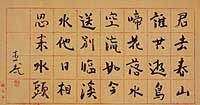 君去春山
誰共遊鳥
啼花落水
空流如今
送別臨溪
水他日相
思來水頭